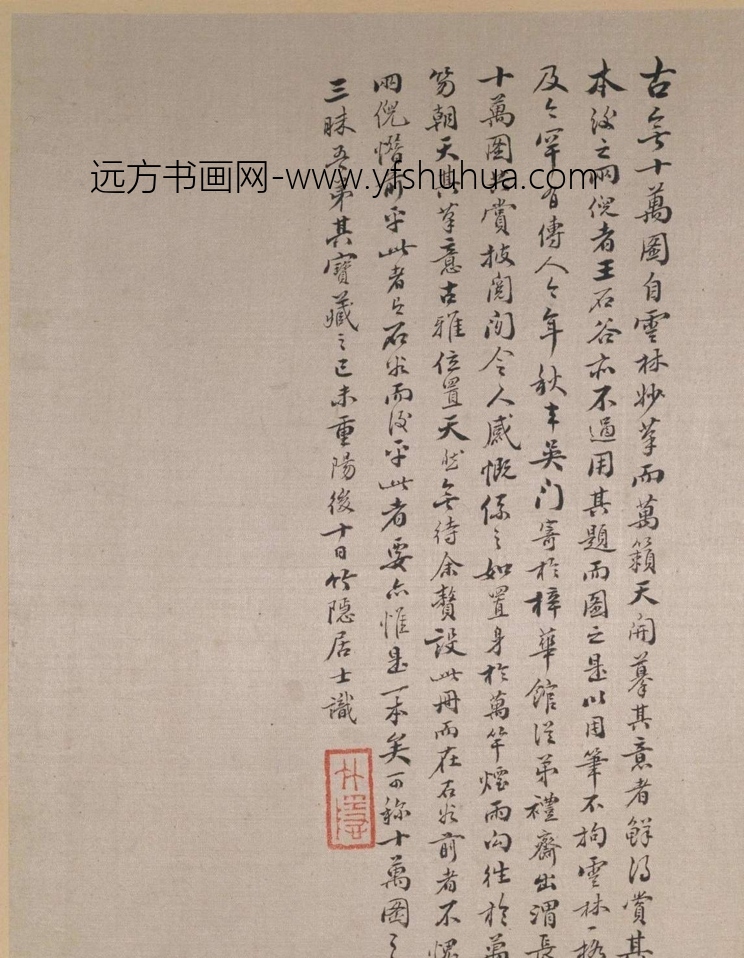 古無十萬圖自雲林妙筆而萬籟天開摹其意者鮮得賞其
本後之兩倪者王石谷亦不過用其題而圖之是以用筆不拘雲林一格
及今罕有傳人今年秋來吴门寄於梓華館從弟禮齋出渭長
十萬圖共賞披閲間令人感慨係之如置身於萬竿煙雨向往於萬
笏朝天其筆意古雅位置天然無待余贅設此冊而在石谷前者不愧
兩倪憯前乎此者石谷而後乎此者要亦惟是一本矣可称十萬圖之
三昧吾弟其寳藏之己未重陽後十日竹隱居士識
远方书画网-www.yfshuhua.com
竹隱